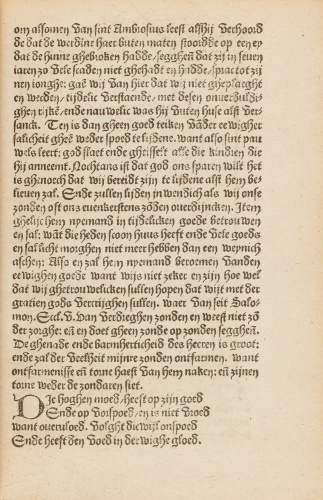 om alsomen van sint Ambrosius leest alshij verhoord
de dat de werdine haer buten maten stoordde op een ey
dat de hinne ghebroken hadde/segghen̄ dat zij in seuen
iaren zo vele scaden niet ghehadt en hadde/sprac tot zij
nen ionghe: gaē wij van hier dat wij niet gheplaeght
en werden/tijdelic verstaende/met desen onuerduldi
ghen rijke/ende nauwelic was hij buten huse alst ver
sanck. Ten is dan gheen goed teiken vāder eewigher
salicheit gheē weder spoed te lijdene. want also sint pau
wels seet: god slaet ende ghisselt alle die kindren die
hij anneemt. Nochtans ist dat god ons sparen wilt het
is ghenoech dat wij bereidt zijn te lijdene alst hem be
lieuen zal. Ende zullen lijden in windich als wij onse
zonden oft ons euenkerstens zōdē ouerdijncken. Item
ghelijc hem nyemand in tijdelicken goede betrouwen
en sal: wāt die heden scoon huus heeft ende vele goeds
en sal licht morghen niet meer hebben dan een weynich
asschen: Also en zal hem nyemand beroemen vanden
eewighen goede want wijs niet zeker en zijn hoe wel
dat wij ghetrouwelicken sullen hopen dat wijt met der
gratien gods vercrijghen sullen. waer van seit Salo
mon. Eccl. v. Van verdreghen zonden en weest niet zō
der zorghe: eñ en doet gheen zonde op zonden segghen̄.
De ghenade ende barmherticheid des heeren is groot:
ende zal der veelheit mijnre zonden ontfarmen. want
ontfarmenisse eñ torne haest van hem naken: eñ zijnen
torne weder de zondaren siet.
Die hoghen moed/heeft op zijn goed
Ende op voorspoed/en is niet vroed
want oueruloed. Volght die wijl onspoed
Ende heeft den voed in der wighe gloed.